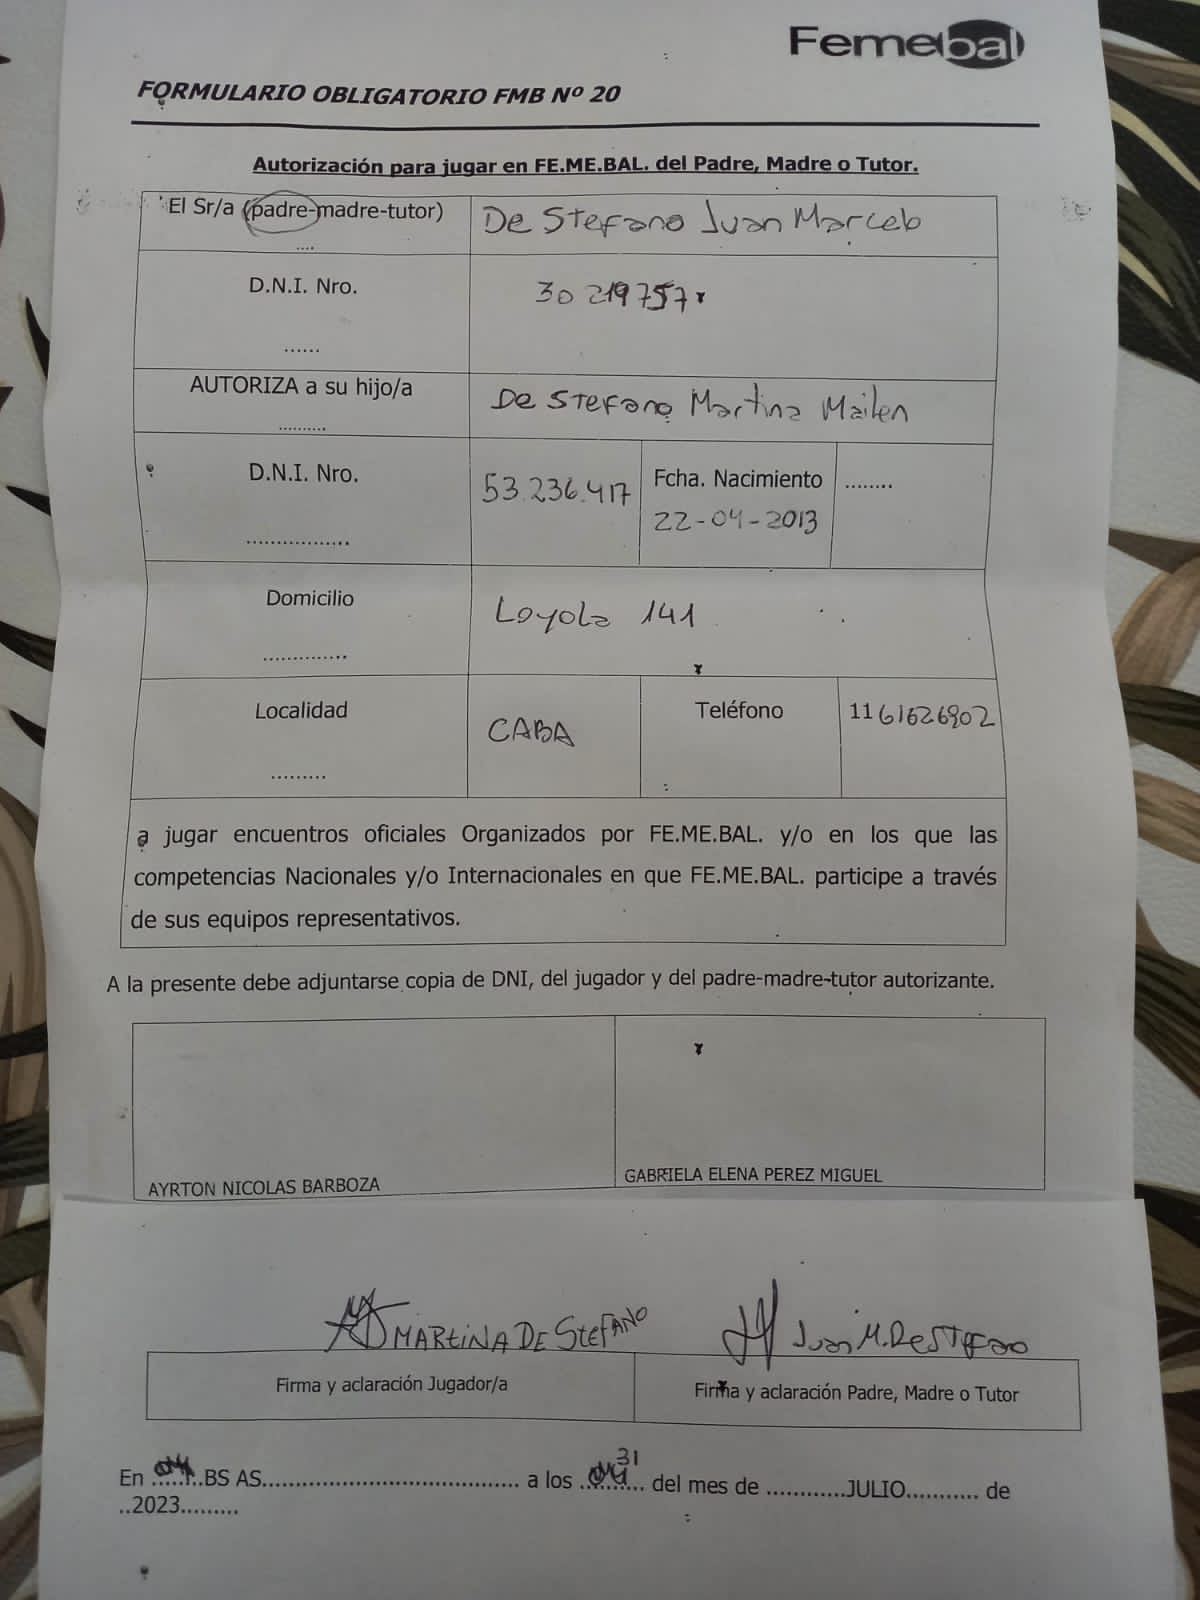 Femebal
FORMULARIO OBLIGATORIO FMB Nº 20
Autorización para jugar en FE.ME.BAL. del Padre, Madre o Tutor.
El Sr/a (padre-madre-tutor) De Stefano Juan Marcelo
....
D.N.I. Nro. 30219757
......
AUTORIZA a su hijo/a De Stefano Martina Mailen
..........
D.N.I. Nro. 53.236.417 Fcha. Nacimiento ........
22-04-2013
.................
Domicilio Loyola 141
..............
Localidad CABA Teléfono 1161626902
.........
a jugar encuentros oficiales Organizados por FE.ME.BAL. y/o en los que las
competencias Nacionales y/o Internacionales en que FE.ME.BAL. participe a través
de sus equipos representativos.
A la presente debe adjuntarse copia de DNI, del jugador y del padre-madre-tutor autorizante.
AYRTON NICOLAS BARBOZA GABRIELA ELENA PEREZ MIGUEL
MARTINA DE STEFANO Juan M. De Stefano
Firma y aclaración Jugador/a Firma y aclaración Padre, Madre o Tutor
31
En ......BS AS...................................... a los .......... del mes de ............JULIO........... de
..2023.........